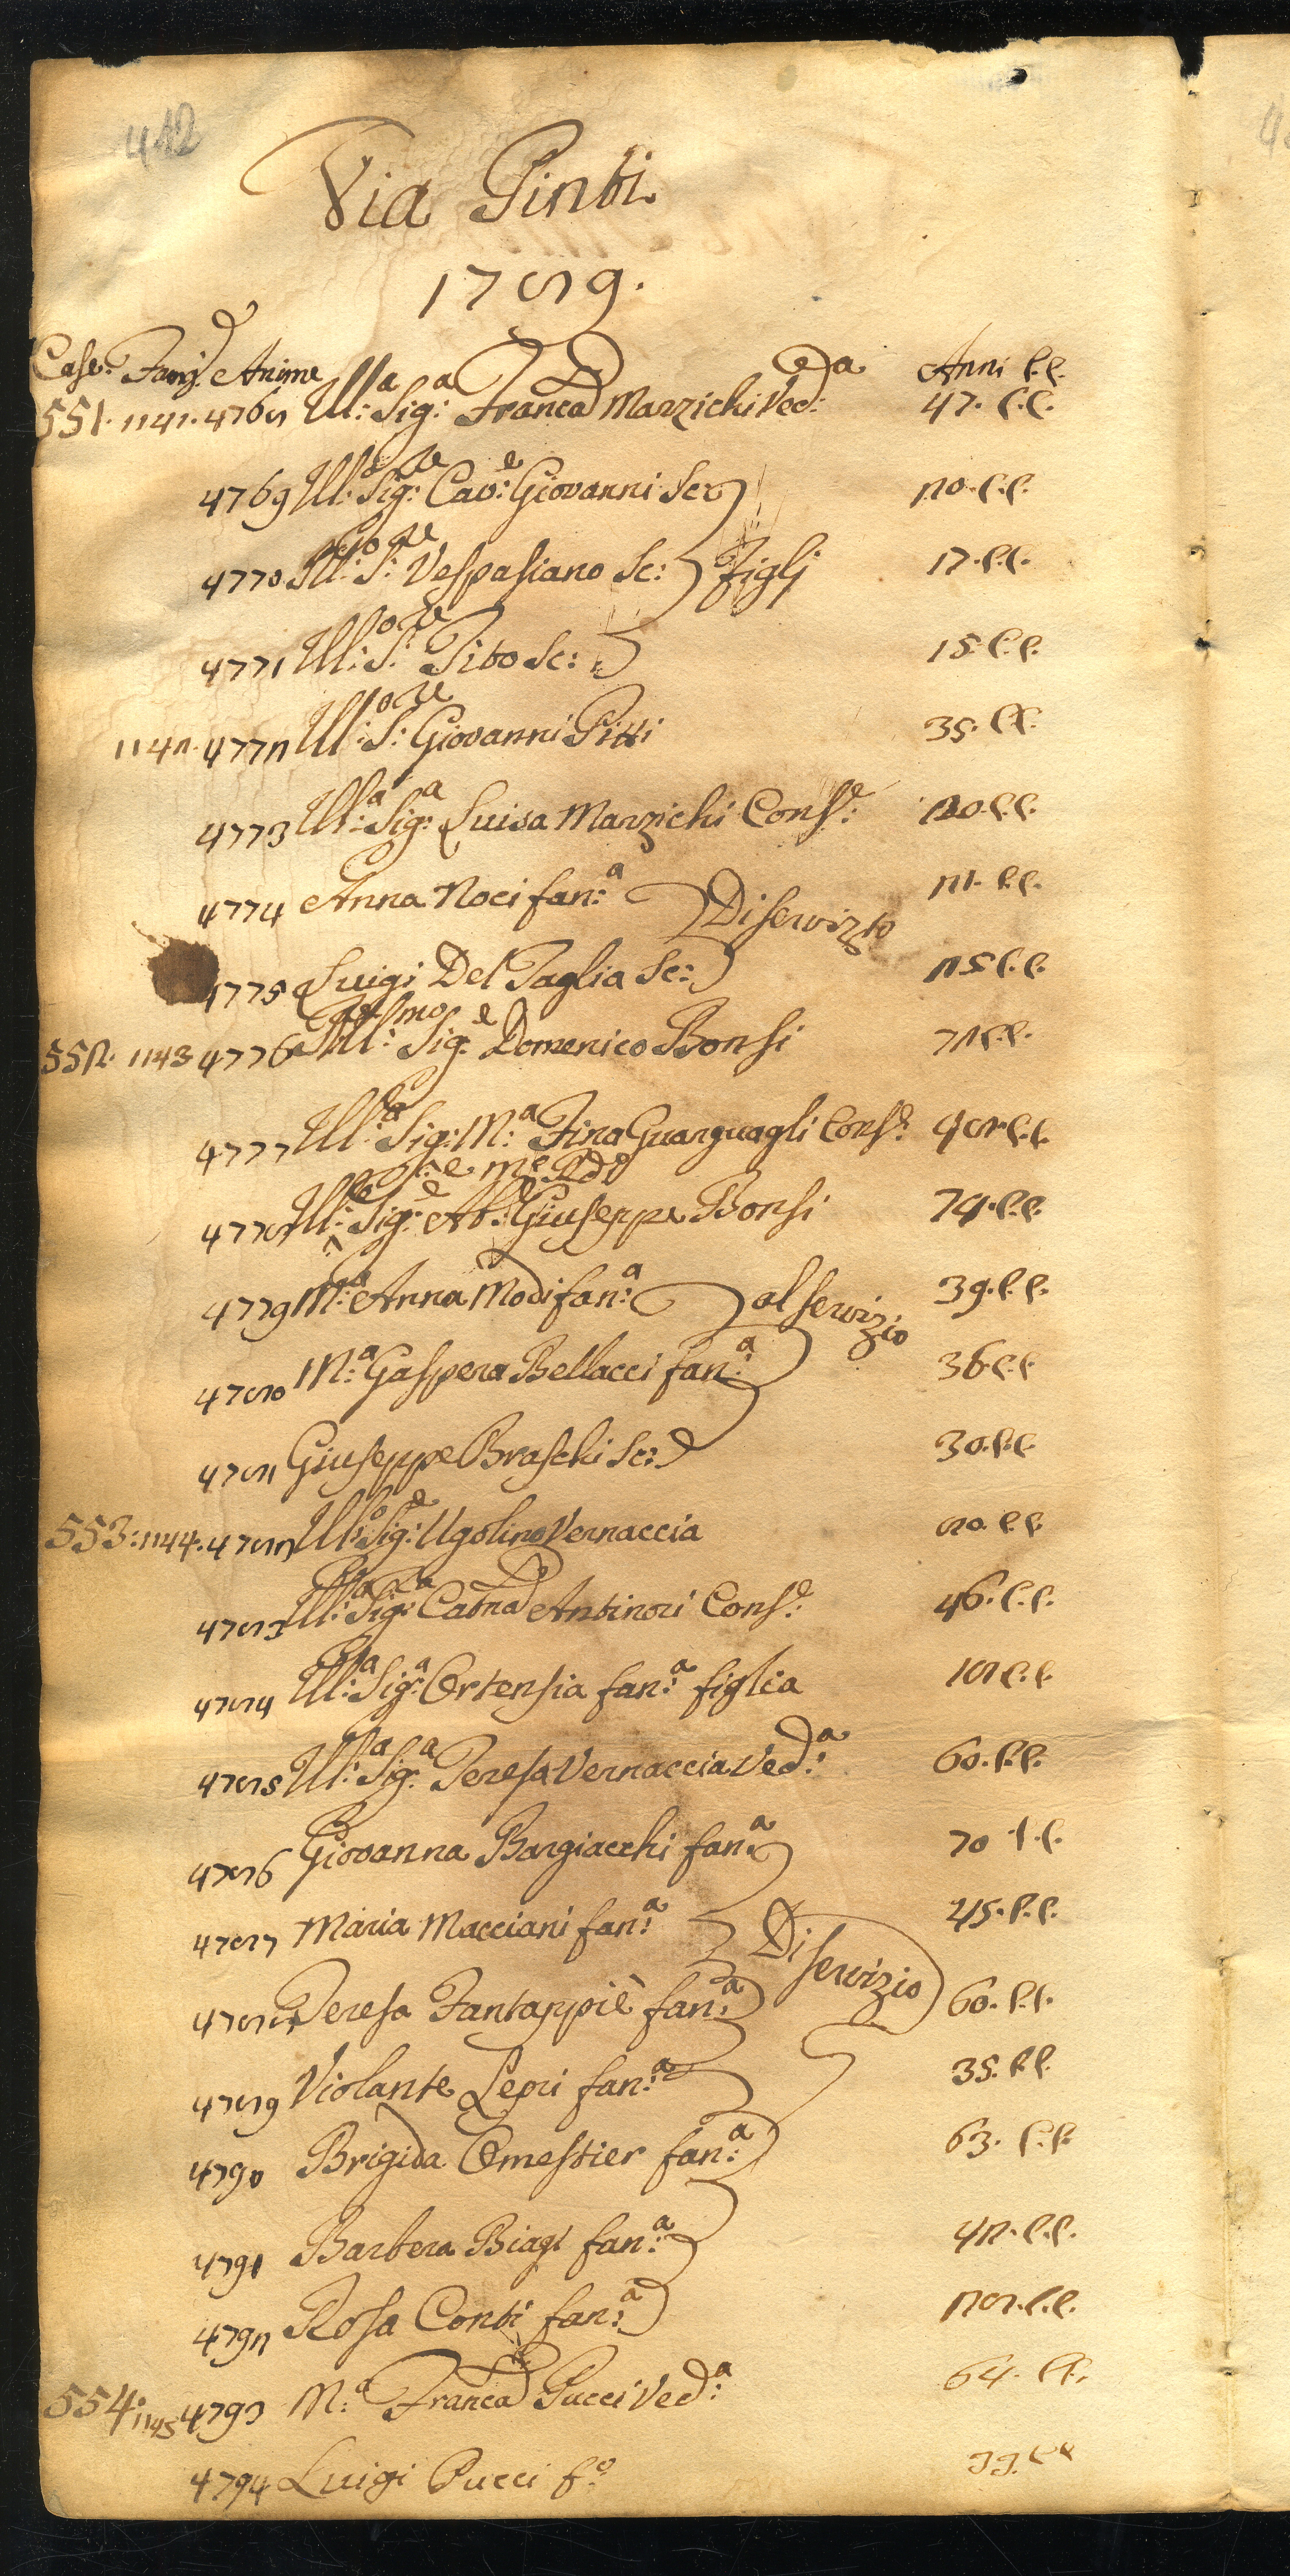 412
Via Pinti
1789.
Case. Famg. Anime Anni C.C.
551. 1141. 4768 Ill:ª Sig:ª Franca Marzichi Ved:ª 47. C.C.
4769 Ill: Sig:re Cav:e Giovanni Sc: 20. C.C.
4770 Ill:o S:re Vespasiano Sc: Figlj 17. C.C.
4771 Ill:o S:re Tito Sc: 15. C.C.
1142. 4772 Ill:o S:re Giovanni Pitti 35. C.C.
4773 Ill:ª Sig:ª Luisa Marzichi Cons:e 20. C.C.
4774 Anna Noci fan:ª Di servizio 21. C.C.
4775 Luigi Del Taglia Sc: 25 C.C.
552. 1143 4776 Ill:mo Sig:e Domenico Bonsi 72 C.C.
4777 Ill:ª Sig: M:ª Fina Guarguagli Cons:e 48 C.C.
e M:e Rdo
4778 Ill: Sig:e Ab:e Giuseppe Bonsi 74. C.C.
4779 M:ª Anna Modi fan:ª al servizio 39. C.C.
4780 M:ª Gaspera Bellacci fan:ª 36 C.C.
4781 Giuseppe Braschi Sc: 30. C.C.
553: 1144. 4782 Ill:o Sig:e Ugolino Vernaccia 80. C.C.
4783 Ill:ª Sig:ª Catna Antinori Cons:e 46. C.C.
4784 Ill:ª Sig:ª Ortensia fan:ª figlia 18 C.C.
4785 Ill:ª Sig:ª Teresa Vernaccia Ved:ª 60. C.C.
4786 Giovanna Bargiacchi fan:ª 70 C.C.
4787 Maria Macciani fan:ª Di servizio 45. C.C.
4788 Teresa Fantappiè fan:ª 60. C.C.
4789 Violante Lepri fan:ª 35. C.C.
4790 Brigida Omestier fan:ª 63. C.C.
4791 Barbera Biagi fan:ª 42. C.C.
4792 Rosa Conti fan:ª 28. C.C.
554. 1145 4793 M:ª Franca Pucci Ved:ª 64. C.C.
4794 Luigi Pucci f:o 33. C.C.